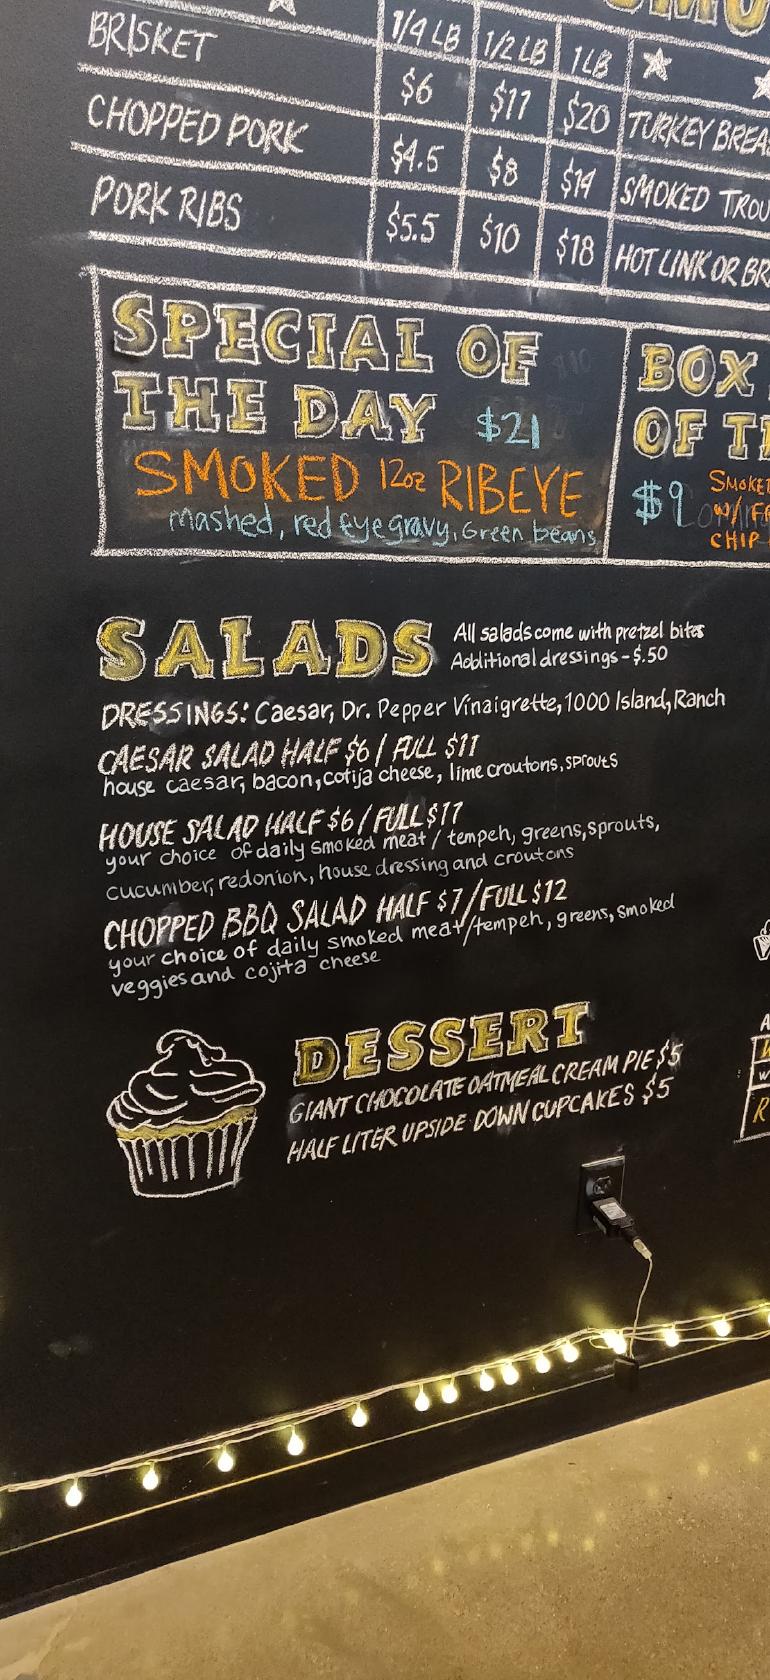 1/4 LB 1/2 LB 1 LB
BRISKET $6 $11 $20
CHOPPED PORK $4.5 $8 $14 SMOKED
PORK RIBS $5.5 $10 $18 HOT LINK OR
TURKEY
SPECIAL OF
THE DAY $21
SMOKED 12oz RIBEYE
mashed, red eye gravy, Green beans
BOX
OF
$9
w/
CHIP
SALADS
All salads come with pretzel bites
Additional dressings - $.50
DRESSINGS: Caesar, Dr. Pepper Vinaigrette, 1000 Island, Ranch
CAESAR SALAD HALF $6 / FULL $11
house caesar, bacon, cotija cheese, lime croutons, sprouts
HOUSE SALAD HALF $6 / FULL $11
your choice of daily smoked meat / tempeh, greens, sprouts,
cucumber, red onion, house dressing and croutons
CHOPPED BBQ SALAD HALF $7 / FULL $12
your choice of daily smoked meat/tempeh, greens, smoked
veggies and cojita cheese
DESSERT
GIANT CHOCOLATE OATMEAL CREAM PIE $5
HALF LITER UPSIDE DOWN CUPCAKES $5